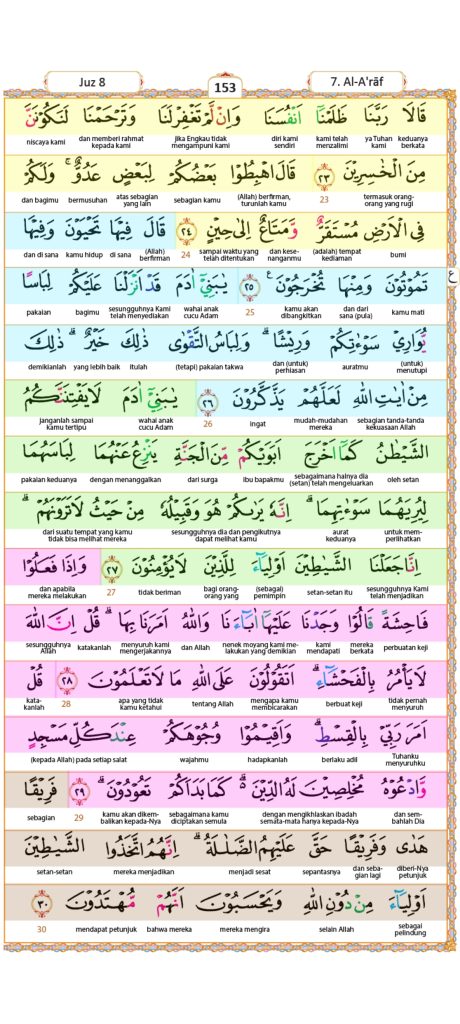 Juz 8 153 7. Al-A'rāf
قَالَا رَبَّنَا ظَلَمْنَآ اَنْفُسَنَا وَاِنْ لَّمْ تَغْفِرْ لَنَا وَتَرْحَمْنَا لَنَكُوْنَنَّ
keduanya berkata ya Tuhan kami kami telah menzalimi diri kami sendiri jika Engkau tidak mengampuni kami dan memberi rahmat kepada kami niscaya kami
مِنَ الْخٰسِرِيْنَ ٢٣ قَالَ اهْبِطُوْا بَعْضُكُمْ لِبَعْضٍ عَدُوٌّ ۚ وَلَكُمْ
termasuk orang-orang yang rugi 23 (Allah) berfirman, turunlah kamu sebagian kamu atas sebagian yang lain bermusuhan dan bagimu
فِى الْاَرْضِ مُسْتَقَرٌّ وَّمَتَاعٌ اِلٰى حِيْنٍ ٢٤ قَالَ فِيْهَا تَحْيَوْنَ وَفِيْهَا
bumi (adalah) tempat kediaman dan kese-nanganmu sampai waktu yang telah ditentukan 24 (Allah) berfirman di sana kamu hidup dan di sana
تَمُوْتُوْنَ وَمِنْهَا تُخْرَجُوْنَ ࣖ ٢٥ يٰبَنِيْٓ اٰدَمَ قَدْ اَنْزَلْنَا عَلَيْكُمْ لِبَاسًا
kamu mati dan dari sana (pula) kamu akan dibangkitkan 25 wahai anak cucu Adam sesungguhnya Kami telah menyediakan bagimu pakaian
ع
يُّوَارِيْ سَوْءٰتِكُمْ وَرِيْشًاۗ وَلِبَاسُ التَّقْوٰى ذٰلِكَ خَيْرٌۗ ذٰلِكَ
(untuk) menutupi auratmu dan (untuk) perhiasan (tetapi) pakaian takwa itulah yang lebih baik demikianlah
مِنْ اٰيٰتِ اللّٰهِ لَعَلَّهُمْ يَذَّكَّرُوْنَ ٢٦ يٰبَنِيْٓ اٰدَمَ لَا يَفْتِنَنَّكُمُ
sebagian tanda-tanda kekuasaan Allah mudah-mudahan mereka ingat 26 wahai anak cucu Adam janganlah sampai kamu tertipu
الشَّيْطٰنُ كَمَآ اَخْرَجَ اَبَوَيْكُمْ مِّنَ الْجَنَّةِ يَنْزِعُ عَنْهُمَا لِبَاسَهُمَا
oleh setan sebagaimana halnya dia (setan) telah mengeluarkan ibu bapakmu dari surga dengan menanggalkan pakaian keduanya
لِيُرِيَهُمَا سَوْءٰتِهِمَاۗ اِنَّهٗ يَرٰىكُمْ هُوَ وَقَبِيْلُهٗ مِنْ حَيْثُ لَا تَرَوْنَهُمْۗ
untuk mem-perlihatkan aurat keduanya sesungguhnya dia dan pengikutnya dapat melihat kamu dari suatu tempat yang kamu tidak bisa melihat mereka
اِنَّا جَعَلْنَا الشَّيٰطِيْنَ اَوْلِيَاۤءَ لِلَّذِيْنَ لَا يُؤْمِنُوْنَ ٢٧ وَاِذَا فَعَلُوْا
sesungguhnya Kami telah menjadikan setan-setan itu (sebagai) pemimpin bagi orang-orang yang tidak beriman 27 dan apabila mereka melakukan
فَاحِشَةً قَالُوْا وَجَدْنَا عَلَيْهَآ اٰبَاۤءَنَا وَاللّٰهُ اَمَرَنَا بِهَاۗ قُلْ اِنَّ اللّٰهَ
perbuatan keji mereka berkata kami mendapati nenek moyang kami me-lakukan yang demikian dan Allah menyuruh kami mengerjakannya katakanlah sesungguhnya Allah
لَا يَأْمُرُ بِالْفَحْشَاۤءِۗ اَتَقُوْلُوْنَ عَلَى اللّٰهِ مَا لَا تَعْلَمُوْنَ ٢٨ قُلْ
tidak pernah menyuruh berbuat keji mengapa kamu membicarakan tentang Allah apa yang tidak kamu ketahui 28 kata-kanlah
اَمَرَ رَبِّيْ بِالْقِسْطِۗ وَاَقِيْمُوْا وُجُوْهَكُمْ عِنْدَ كُلِّ مَسْجِدٍ
Tuhanku menyuruhku berlaku adil hadapkanlah wajahmu (kepada Allah) pada setiap salat
وَّادْعُوْهُ مُخْلِصِيْنَ لَهُ الدِّيْنَ ۗ كَمَا بَدَاَكُمْ تَعُوْدُوْنَۗ ٢٩ فَرِيْقًا
dan sem-bahlah Dia dengan mengikhlaskan ibadah semata-mata hanya kepada-Nya sebagaimana kamu diciptakan semula kamu akan dikem-balikan kepada-Nya 29 sebagian
هَدٰى وَفَرِيْقًا حَقَّ عَلَيْهِمُ الضَّلٰلَةُ ۗ اِنَّهُمُ اتَّخَذُوا الشَّيٰطِيْنَ
diberi-Nya petunjuk dan seba-gian lagi sepantasnya menjadi sesat mereka menjadikan setan-setan
اَوْلِيَاۤءَ مِنْ دُوْنِ اللّٰهِ وَيَحْسَبُوْنَ اَنَّهُمْ مُّهْتَدُوْنَ ٣٠
sebagai pelindung selain Allah mereka mengira bahwa mereka mendapat petunjuk 30